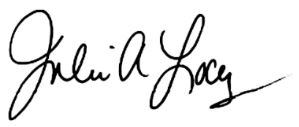 Julie A Lacy